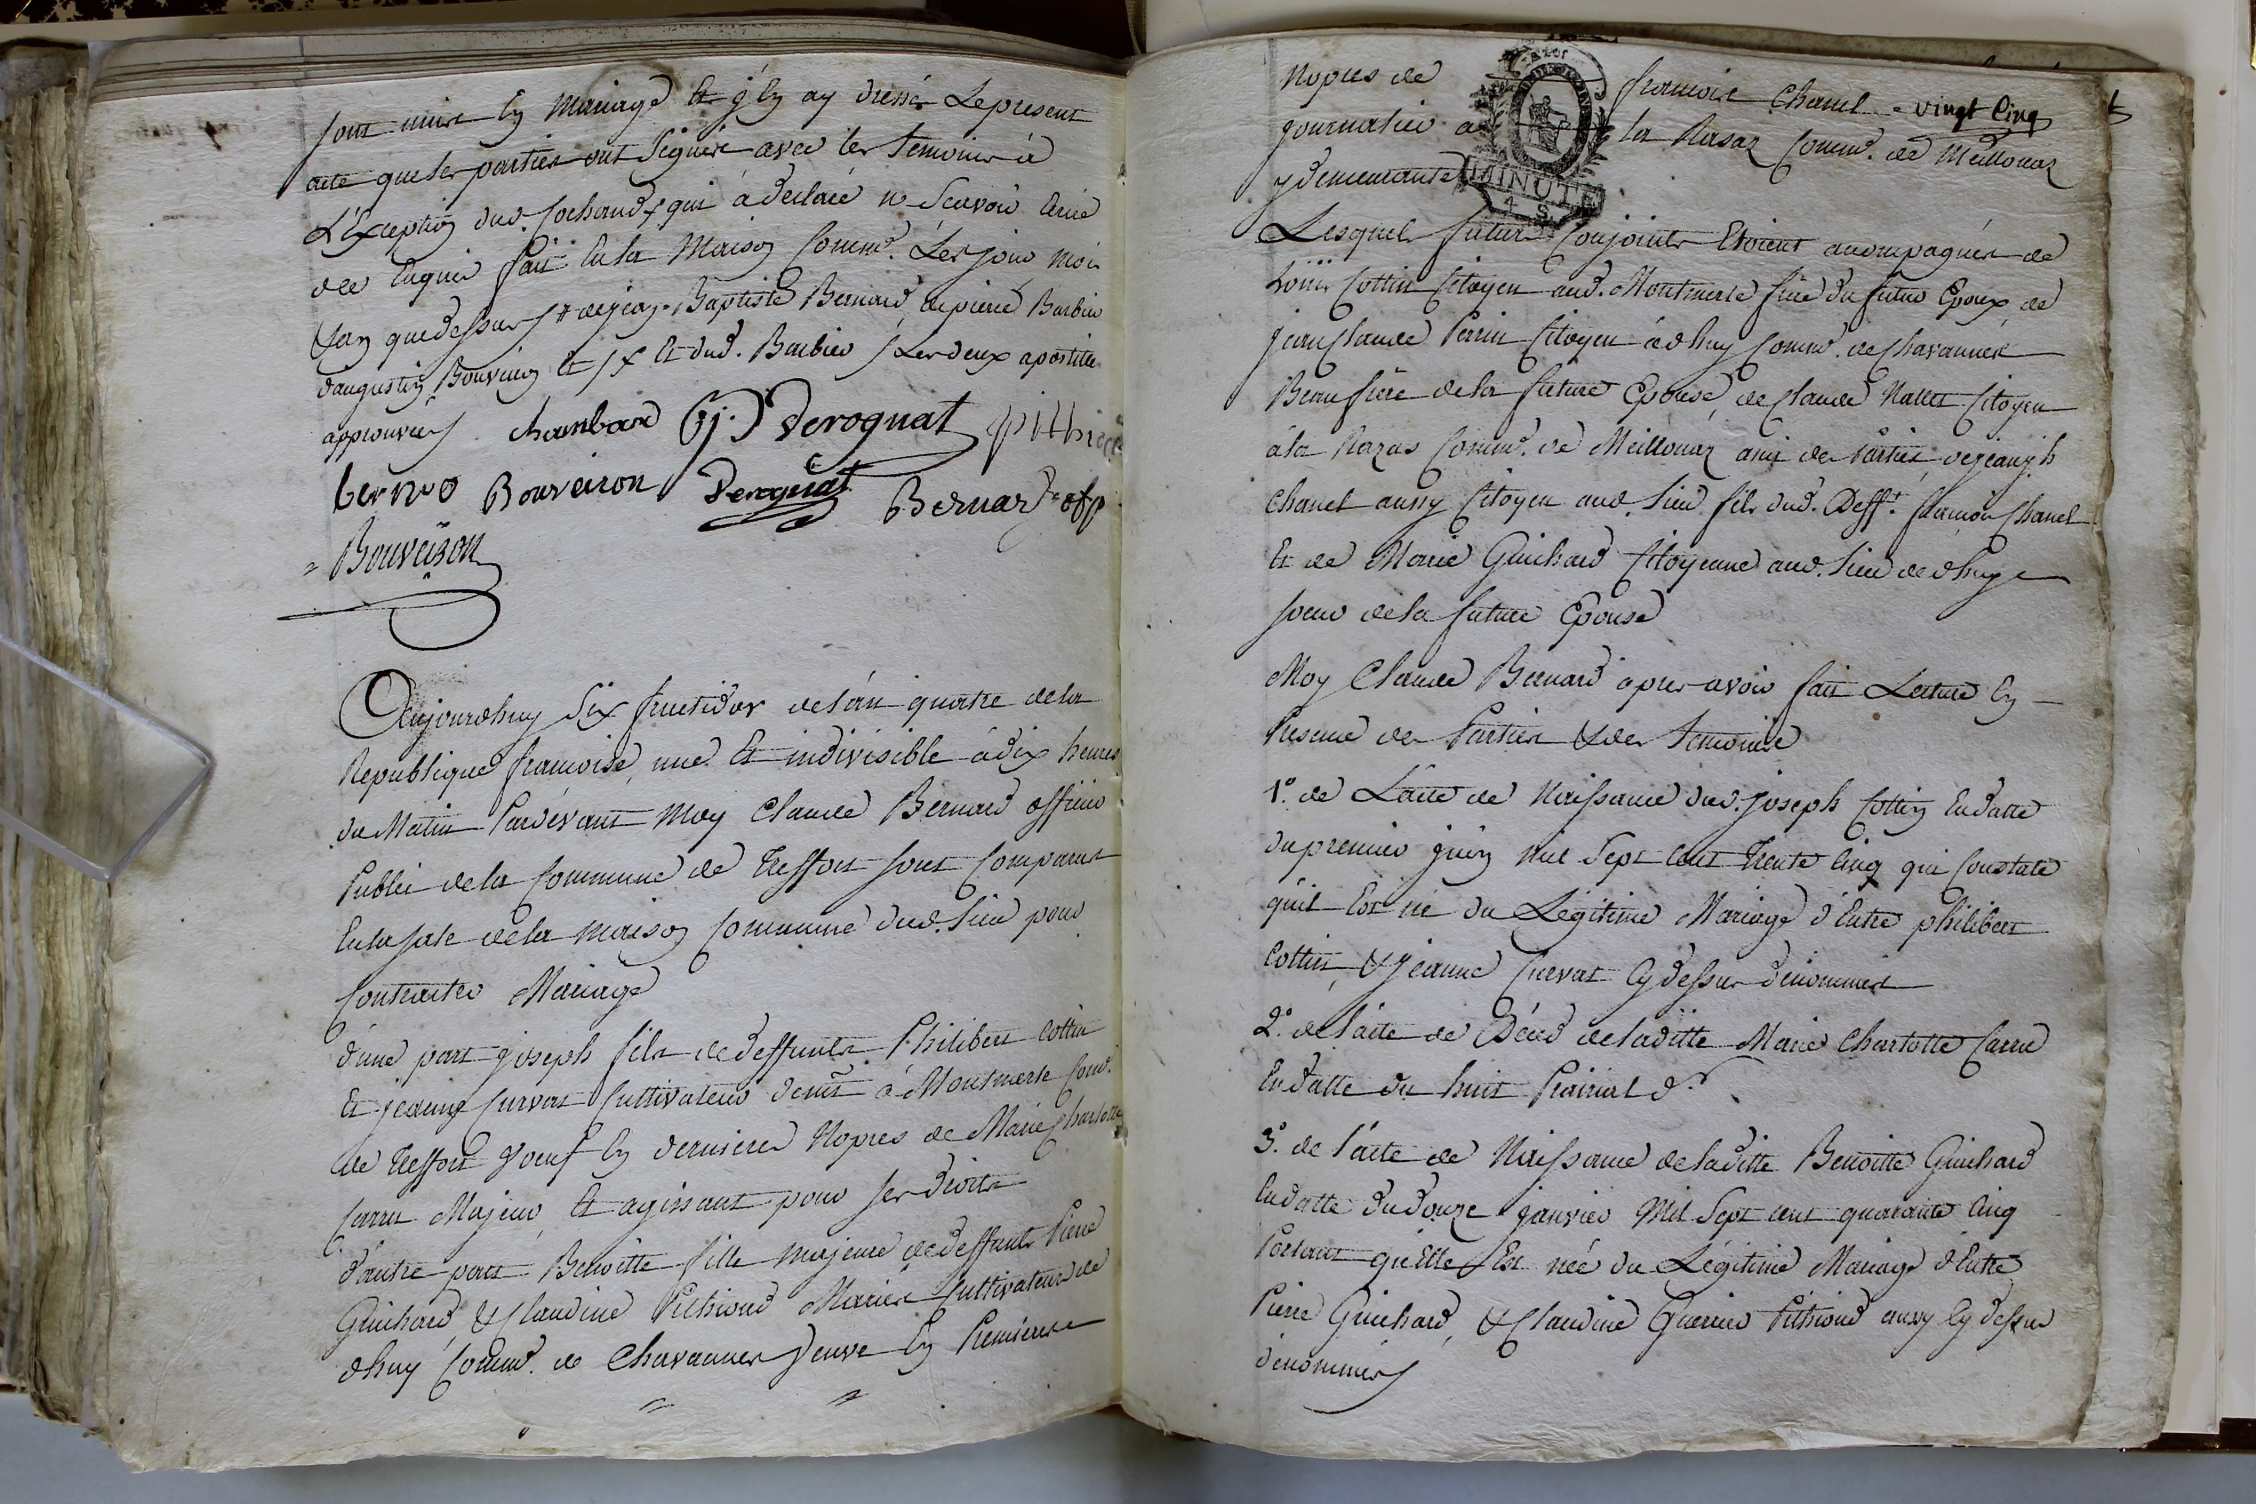 sont unis en mariage et j'en ay dressé le present
acte que les parties ont signées avec les temoins à
L'Exception dud. Cochand, qui à declaré n Scavoir Ecrire
de ce Enquis fait En la Maison Commne. Les jour mois
& an que dessus # de jean-Baptiste Bernard de pierre Barbier
d'augustin Bouviron et / x Et dud. Barbier / Les deux apostilles
approuvées chambard Cj. Derognat
bernard Bouveiron Derognat Bernard off p
= Bouveiron
Aujourdhuy Six fructidor de l'an quatre de la
Republique francoise, une Et indivisible à dix heures
du Matin Pardevant Moy Claude Bernard officier
Public de la Commune de Treffort sont Comparus
En la sale de la maison Commune dud. Lieu pour
Contracter Mariage
d'une part joseph fils de deffunts Philibert Cottin
Et jeanne Curvat Cultivateur demt à Montmerle Comne.
de Treffort Voeuf En dernieres Nopces de Marie Charlotte
Carru Majeur Et agissant pour ses droits
d'autre part Benoitte fille majeure de deffunts Pierre
Guichard & Claudine Pithioud Mariés Cultivateurs de
dhuy Commne. de Chavannes Veuve En Premieres
Nopces de francois Chanel = vingt Cinq
journalier a la Rasaz Commne. de Meillonaz
y demeurante
MINUTE
4 S
Lesquels futurs Conjoints Etoient acompagnés de
Louis Cottin Citoyen aud. Montmerle frere du futur Epoux, de
jean Claude Perrin Citoyen à dhuy Commne. de Chavannes
Beaufrere de la future Epouse, de Claude Nallet Citoyen
à la Razas Commne. de Meillonaz ami des Parties de jean jh
Chanel aussy Citoyen aud. Lieu fils dud. Defft. francois Chanel
Et de Marie Guichard Citoyenne aud. Lieu de dhuy
soeur de la future Epouse
Moy Claude Bernard apres avoir fait Lecture En
Presence des Parties & des temoins
1°. de L'acte de Naissance dud. joseph Cottin En datte
du premier juin mil Sept cent trente Cinq qui Constate
qu'il Est né du Légitime Mariage d'Entre philibert
Cottin, & jeanne Curvat Cy dessus dénommés
2°. de l'acte de Déces de laditte Marie Charlotte Carru
En datte du huit Prairial dr
3°. de l'acte de Naissance de laditte Benoitte Guichard
En datte du douze janvier Mil Sept cent quarante Cinq
Portant qu'Elle Est née du Légitime Mariage d'Entre
Pierre Guichard, & Claudine Guerrier Pithioud aussy Cy dessus
dénommés